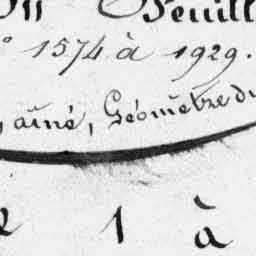 Feuill
° 1574 à 1929.
, aîné, Géomètre du
1 à